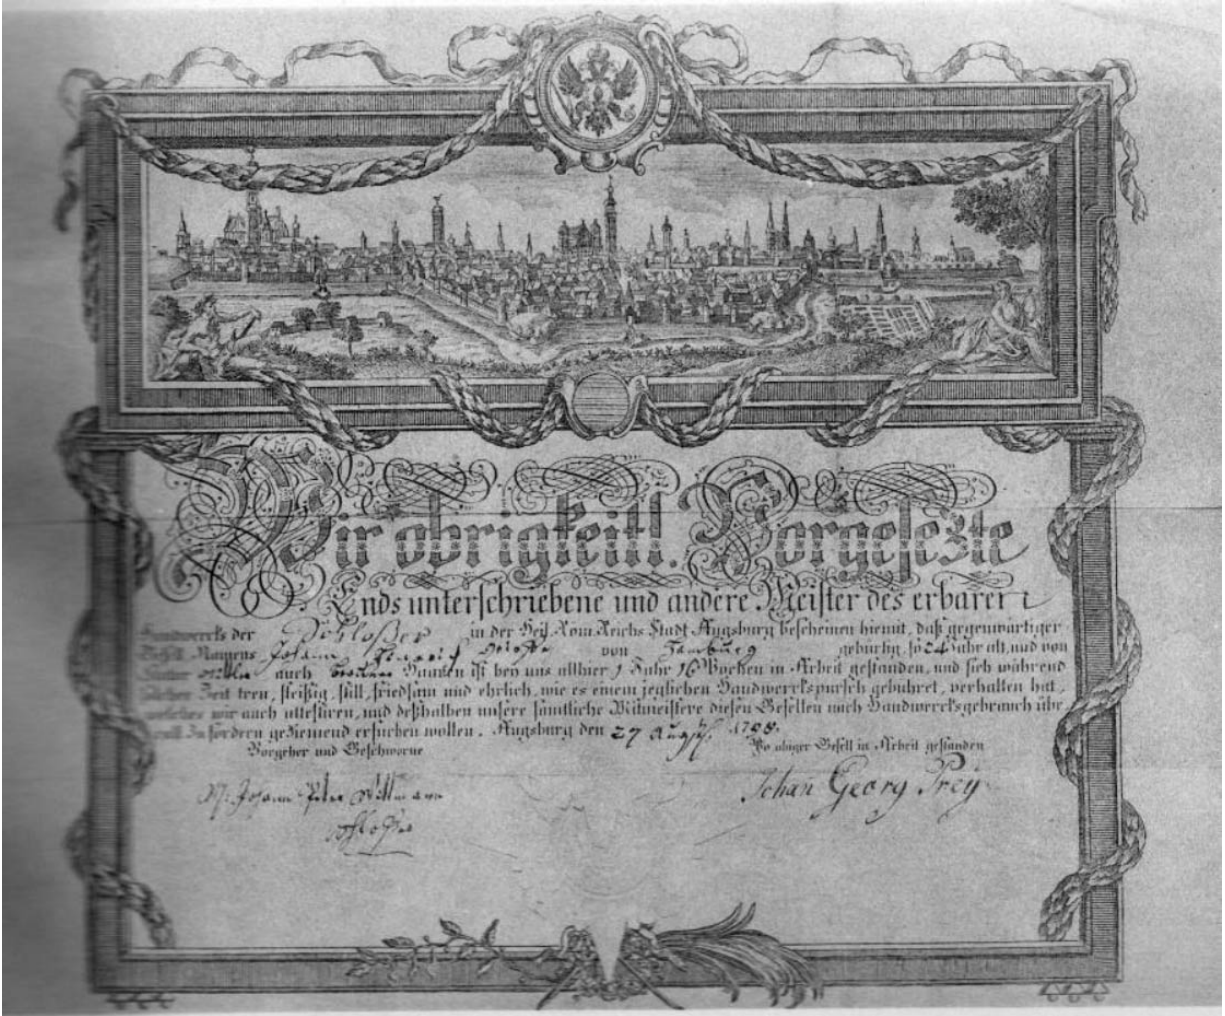 Wir obrigkeitl. Vorgesezte
Ends unterschriebene und andere Meister des erbaren
Handwercks der Schloßer in der Heil. Röm. Reichs Stadt Augsburg bescheinen hiemit, daß gegenwärtiger
Gesell, Namens Johann von Hamburg gebürtig, so 24 Jahr alt, und von
Statur mitler auch Haaren ist bey uns allhier 1 Jahr 16 Wochen in Arbeit gestanden, und sich während
solcher Zeit treu, fleißig, still, friedsam und ehrlich, wie es einem jeglichen Handwerckspursch gebühret, verhalten hat,
welches wir auch attestiren, und deßhalben unsere sämtliche Mitmeistere diesen Gesellen nach Handwercksgebrauch
zu fördern geziemend ersuchen wollen. Augsburg den 27 August
Vorgeher und Geschworne
Wo obiger Gesell in Arbeit gestanden
Johann Peter Willmann
Schloßer
Johan Georg Prey